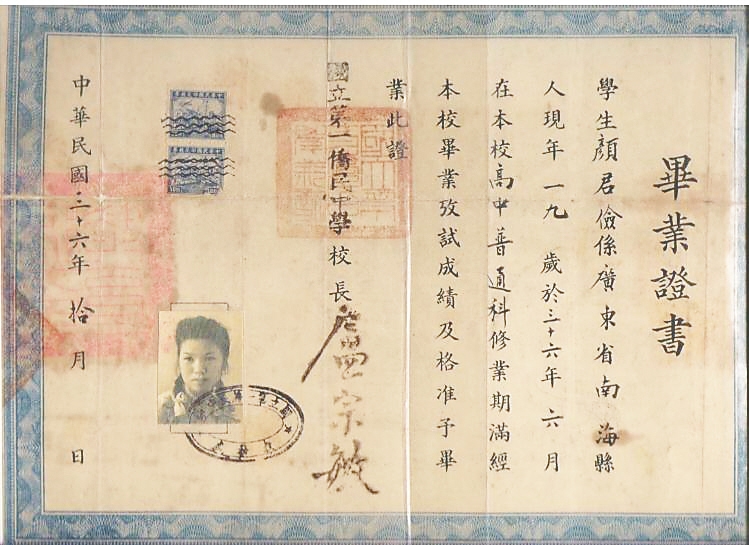 畢業證書
學生顏君儉係廣東省南海縣
人現年一九歲於三十六年六月
在本校高中普通科修業期滿經
本校畢業攷試成績及格准予畢
業此證
國立第一僑民中學校長盧宗敏
中華民國三十六年拾月 日